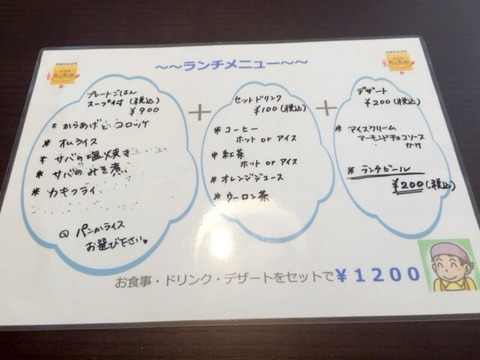 ~~ランチメニュー~~
プレートごはん
スープ付 (税込)
¥900
* からあげとコロッケ
* オムライス
* サバの塩焼き
* サバのみそ煮
* カキフライ
◎ パンかライス
お選び下さい
+
セットドリンク
¥100 (税込)
* コーヒー
ホット or アイス
* 紅茶
ホット or アイス
* オレンジジュース
* ウーロン茶
+
デザート
¥200 (税込)
* アイスクリーム
アーモンドチョコソース
かけ
* ランチビール
¥200 (税込)
お食事・ドリンク・デザートをセットで¥1200